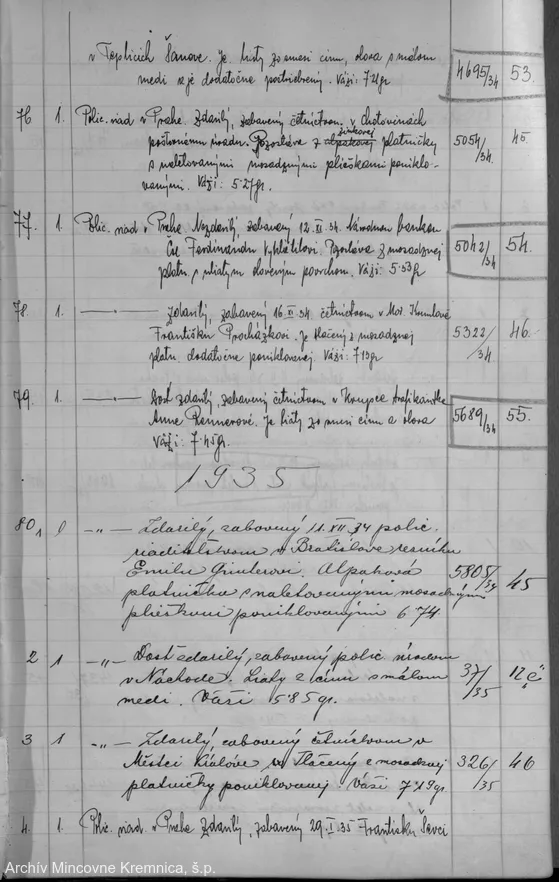 v Teplicích Šanove. Je liaty zo smesi cínu, olova s málom
medi a je dodatočne postriebrený. Váži: 7.21gr 4695/34 53.
76 1. Polic. riad. v Prahe. Zdarilý, zabavený četníctvom v Chotovinach
poštovnému úradu. Pozostáva z alpakovej zinkovej platničky 5054/34. 45.
s naletovanými mosadznými plieškami poniklo-
vanými. Váži: 5.27gr.
77. 1. Polic. riad. v Prahe. Nezdarilý, zabavený 12.XI.34. Národnou bankou
Čsl. Ferdinandu Vyhlátilovi. Pozostáva z mosadznej 5042/34 54.
platn. s uliatym oloveným povrchom. Váži: 5.53gr
78. 1. —„— Zdarilý, zabavený 16.XI.34. četníctvom v Mor. Krumlove
Františku Procházkovi. Je tlačený z mosadznej 5322/34 46.
platn. dodatočne poniklovanej. Váži: 7.13gr
79. 1. —„— Dosť zdarilý, zabavený četníctvom v Krupce trafikantke
Anne Rennerové. Je liaty zo smesi cínu a olova 5689/34 55.
Váži: 7.45gr.
1935
80. 1 —„— Zdarilý, zabavený 11.XII.34 polic.
riaditeľstvom v Bratislave resníku
Emilu Ginterovi. Alpaková 5805/34 45
platnička s naletovanými mosadznými
plieškami poniklovanými 6.74
2 1 —„— Dosť zdarilý, zabavený polic. úradom
v Náchode. Liaty z cínu s málom 37/35 12 č
medi. Váži 5.85gr.
3 1 —„— Zdarilý, zabavený četníctvom v
Městci Králove. Tlačený z mosadznej 326/35 46
platničky poniklovanej. Váži 7.19gr
4. 1. Polic. riad. v Prahe Zdarilý, zabavený 29.I.35 Františku Ševci
Archív Mincovne Kremnica, š.p.